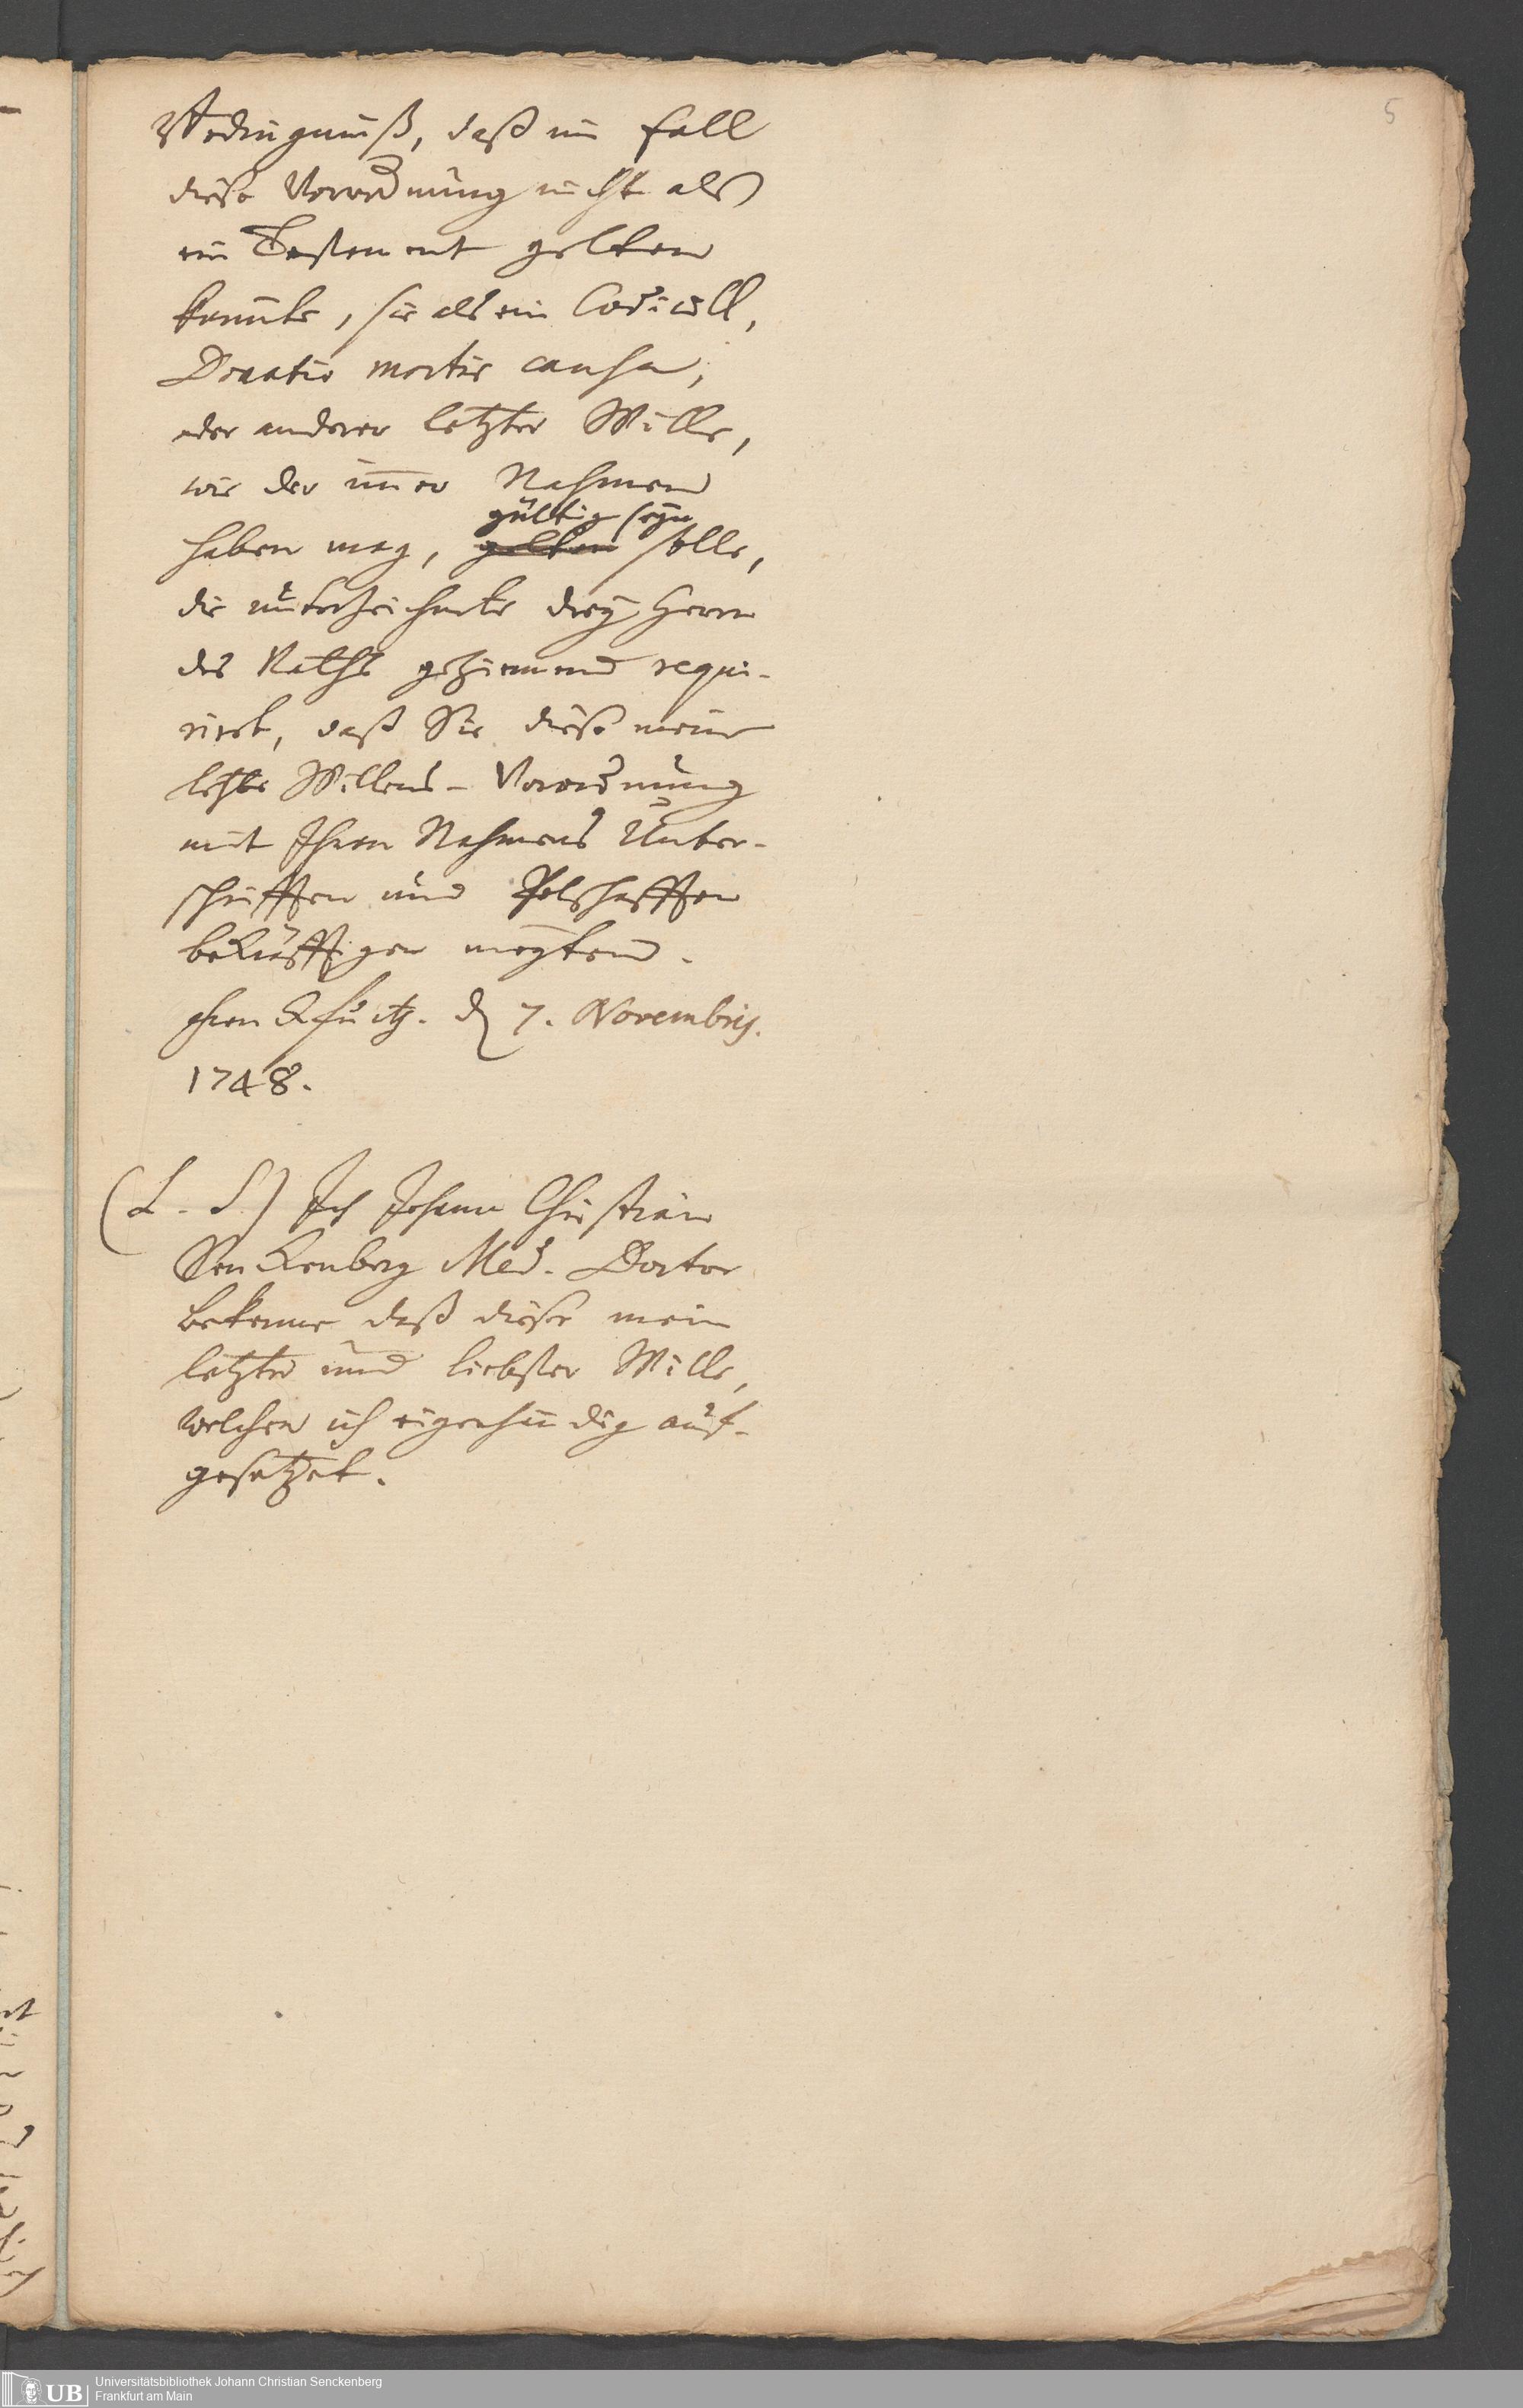 5
Bedingnuß, daß im fall
diese Verordnung nicht als
ein Testament gelten
könnte, sie als ein Codicill,
Donatio mortis causa,
oder anderer letzter Wille,
wie der immer Nahmen
gültig seyn
haben mag, gelten solle,
die unterzeichnete drey Herrn
des Raths geziemend requi-
rirt, daß Sie diese meine
letzte Willens-Verordnung
mit Ihren Nahmens Unter-
schrifften und Petschafften
bekräfftigen mögten.
d 7. Novembris.
1748.
(L. S.) Ich Johann Christian
Senckenberg Med. Doctor
bekenne daß dieses mein
letzter und liebster Wille,
welchen ich eigenhändig auf-
gesetzet.
UB Universitätsbibliothek Johann Christian Senckenberg
Frankfurt am Main